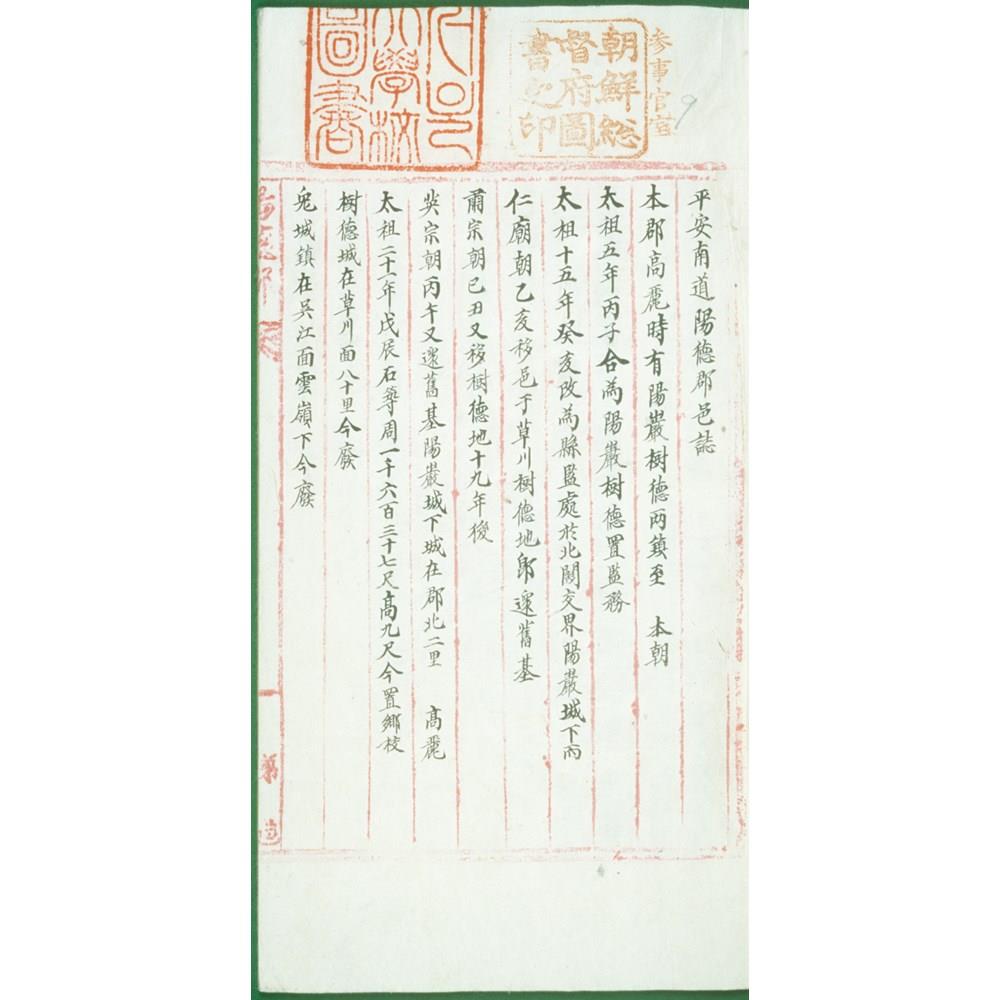 參事官室
朝鮮総
督府圖
書之印
서울
大學校
圖書
9
平安南道陽德郡邑誌
本郡高麗時有陽巖樹德兩鎮至 本朝
太祖五年丙子合為陽巖樹德置監務
太祖十五年癸亥改為縣監處於北關交界陽巖城下而
仁廟朝乙亥移邑于草川樹德地即還舊基
肅宗朝己丑又移樹德地十九年後
英宗朝丙午又還舊基陽巖城下城在郡北二里 高麗
太祖二十一年戊辰石築周一千六百三十七尺高九尺今置鄉校
樹德城在草川面八十里今廢
兎城鎮在吳江面雲嶺下今廢
一
第
道